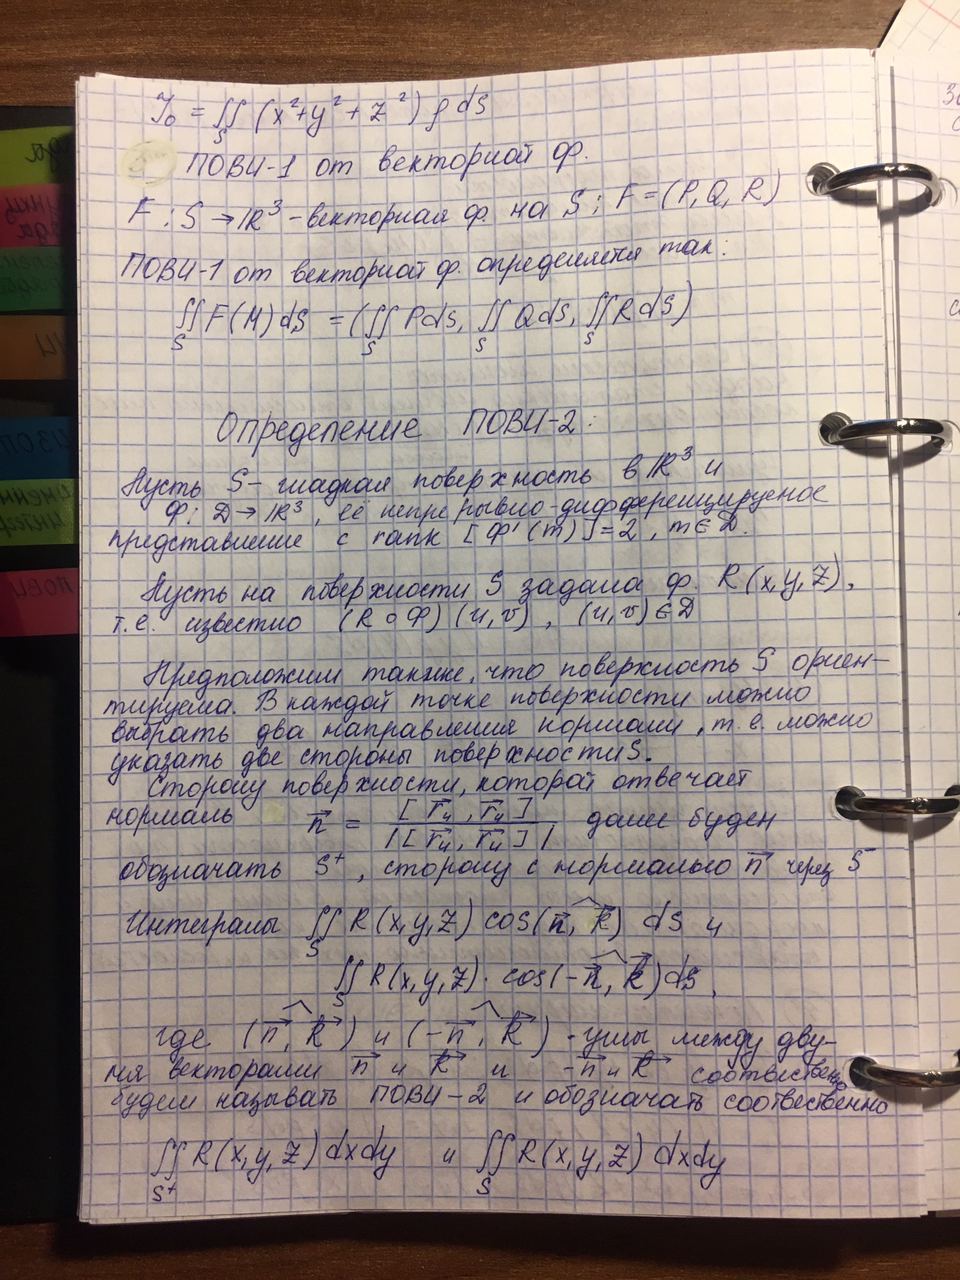 J₀ = ∬ₛ (x² + y² + z²) ρ dS
ПОВИ-1 от векторной ф.
F : S → ℝ³ - векторная ф. на S ; F = (P, Q, R)
ПОВИ-1 от векторной ф. определяется так:
∬ₛ F(M) dS = (∬ₛ P dS, ∬ₛ Q dS, ∬ₛ R dS)
Определение ПОВИ-2:
Пусть S - гладкая поверхность в ℝ³ и
Ф: D → ℝ³, её непрерывно-дифференцируемое
представление с rank [Ф'(m)] = 2, m ∈ D.
Пусть на поверхности S задана ф. R(x, y, z),
т.е. известно (R ∘ Ф)(u, v), (u, v) ∈ D
Предположим также, что поверхность S ориен-
тируема. В каждой точке поверхности можно
выбрать два направления нормали, т.е. можно
указать две стороны поверхности S.
Сторону поверхности, которой отвечает
нормаль n⃗ = [r⃗u, r⃗u] / |[r⃗u, r⃗u]| далее будем
обозначать S⁺, сторону с нормалью n⃗ через S⁻
Интегралы ∬ₛ R(x, y, z) cos(n⃗, k⃗) dS и
∬ₛ R(x, y, z) · cos(-n⃗, k⃗) dS,
где (n⃗, k⃗) и (-n⃗, k⃗) - углы между дву-
мя векторами n⃗ и k⃗ и -n⃗ и k⃗ соотвественно
будем называть ПОВИ-2 и обозначать соотвественно
∬S⁺ R(x, y, z) dxdy и ∬S R(x, y, z) dxdy